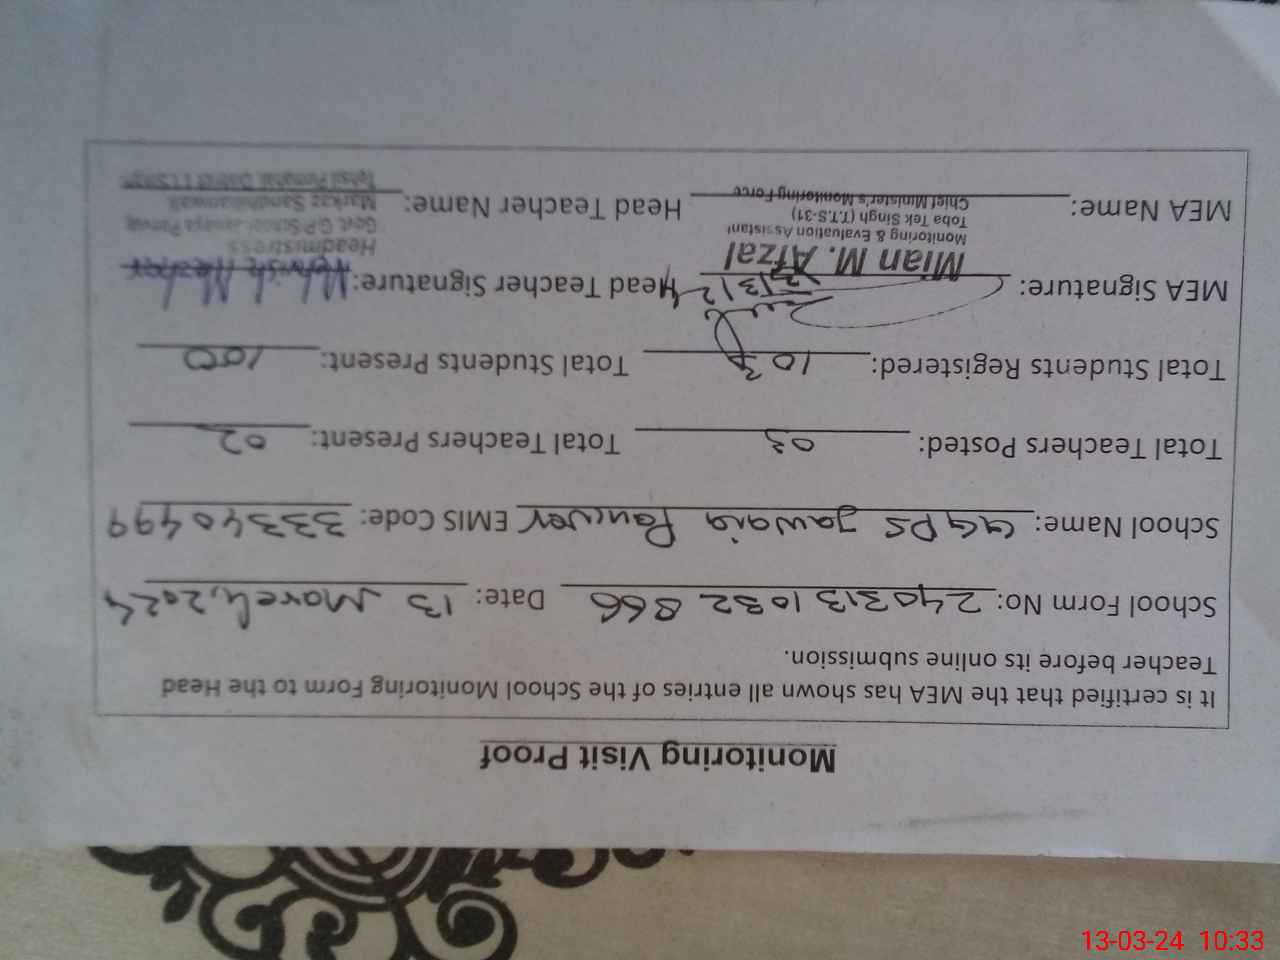 Monitoring Visit Proof
It is certified that the MEA has shown all entries of the School Monitoring Form to the Head
Teacher before its online submission.
School Form No: 2403131032 866 Date: 13 March, 2024
School Name: GGPS Jawaia Panwer EMIS Code: 33340499
Total Teachers Posted: 03 Total Teachers Present: 02
Total Students Registered: 103 Total Students Present: 100
MEA Signature: Head Teacher Signature: Mehvish Mazher
Mian M. Afzal
Monitoring & Evaluation Assistant
Headmistress
Toba Tek Singh (T.T.S-31)
Govt. G.P School
MEA Name: Chief Minister's Monitoring Force Head Teacher Name: Markaz Sandhilianwali
13-03-24 10:33